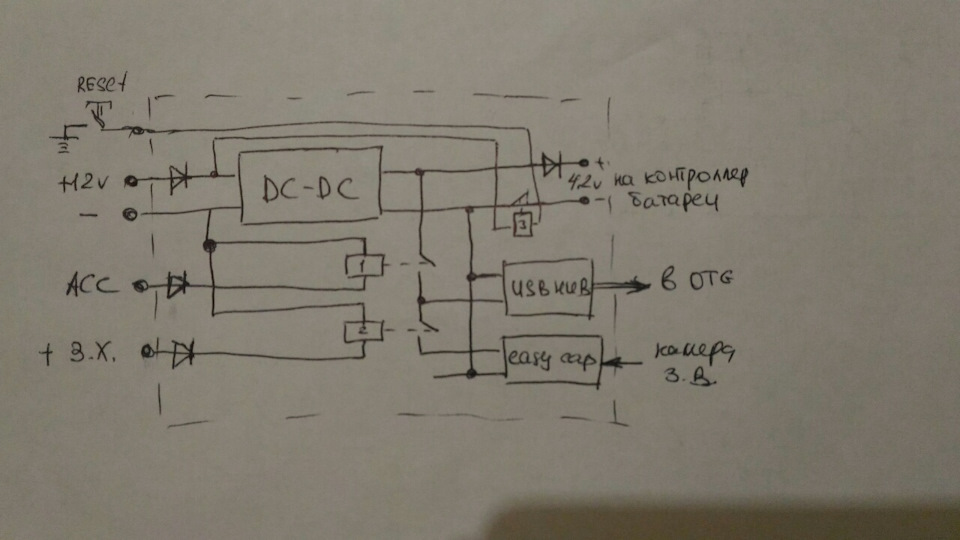 RESET
+12v
DC-DC
+
4,2v на контроллер
- батареи
-
3
ACC
1
USB HUB
в OTG
+ З.Х.
2
easy cap
камера
З.В.